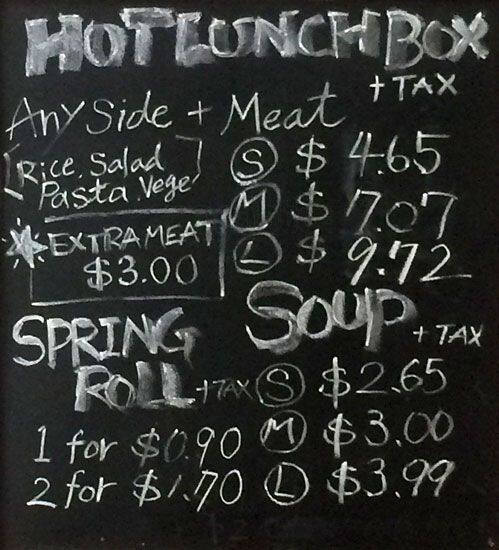 HOT LUNCH BOX
+ TAX
Any Side + Meat
[Rice. Salad
Pasta. Vege]
S $ 4.65
M $ 7.07
L $ 9.72
EXTRA MEAT
$3.00
SPRING
ROLL + TAX
1 for $0.90
2 for $1.70
SOUP + TAX
S $2.65
M $3.00
L $3.99